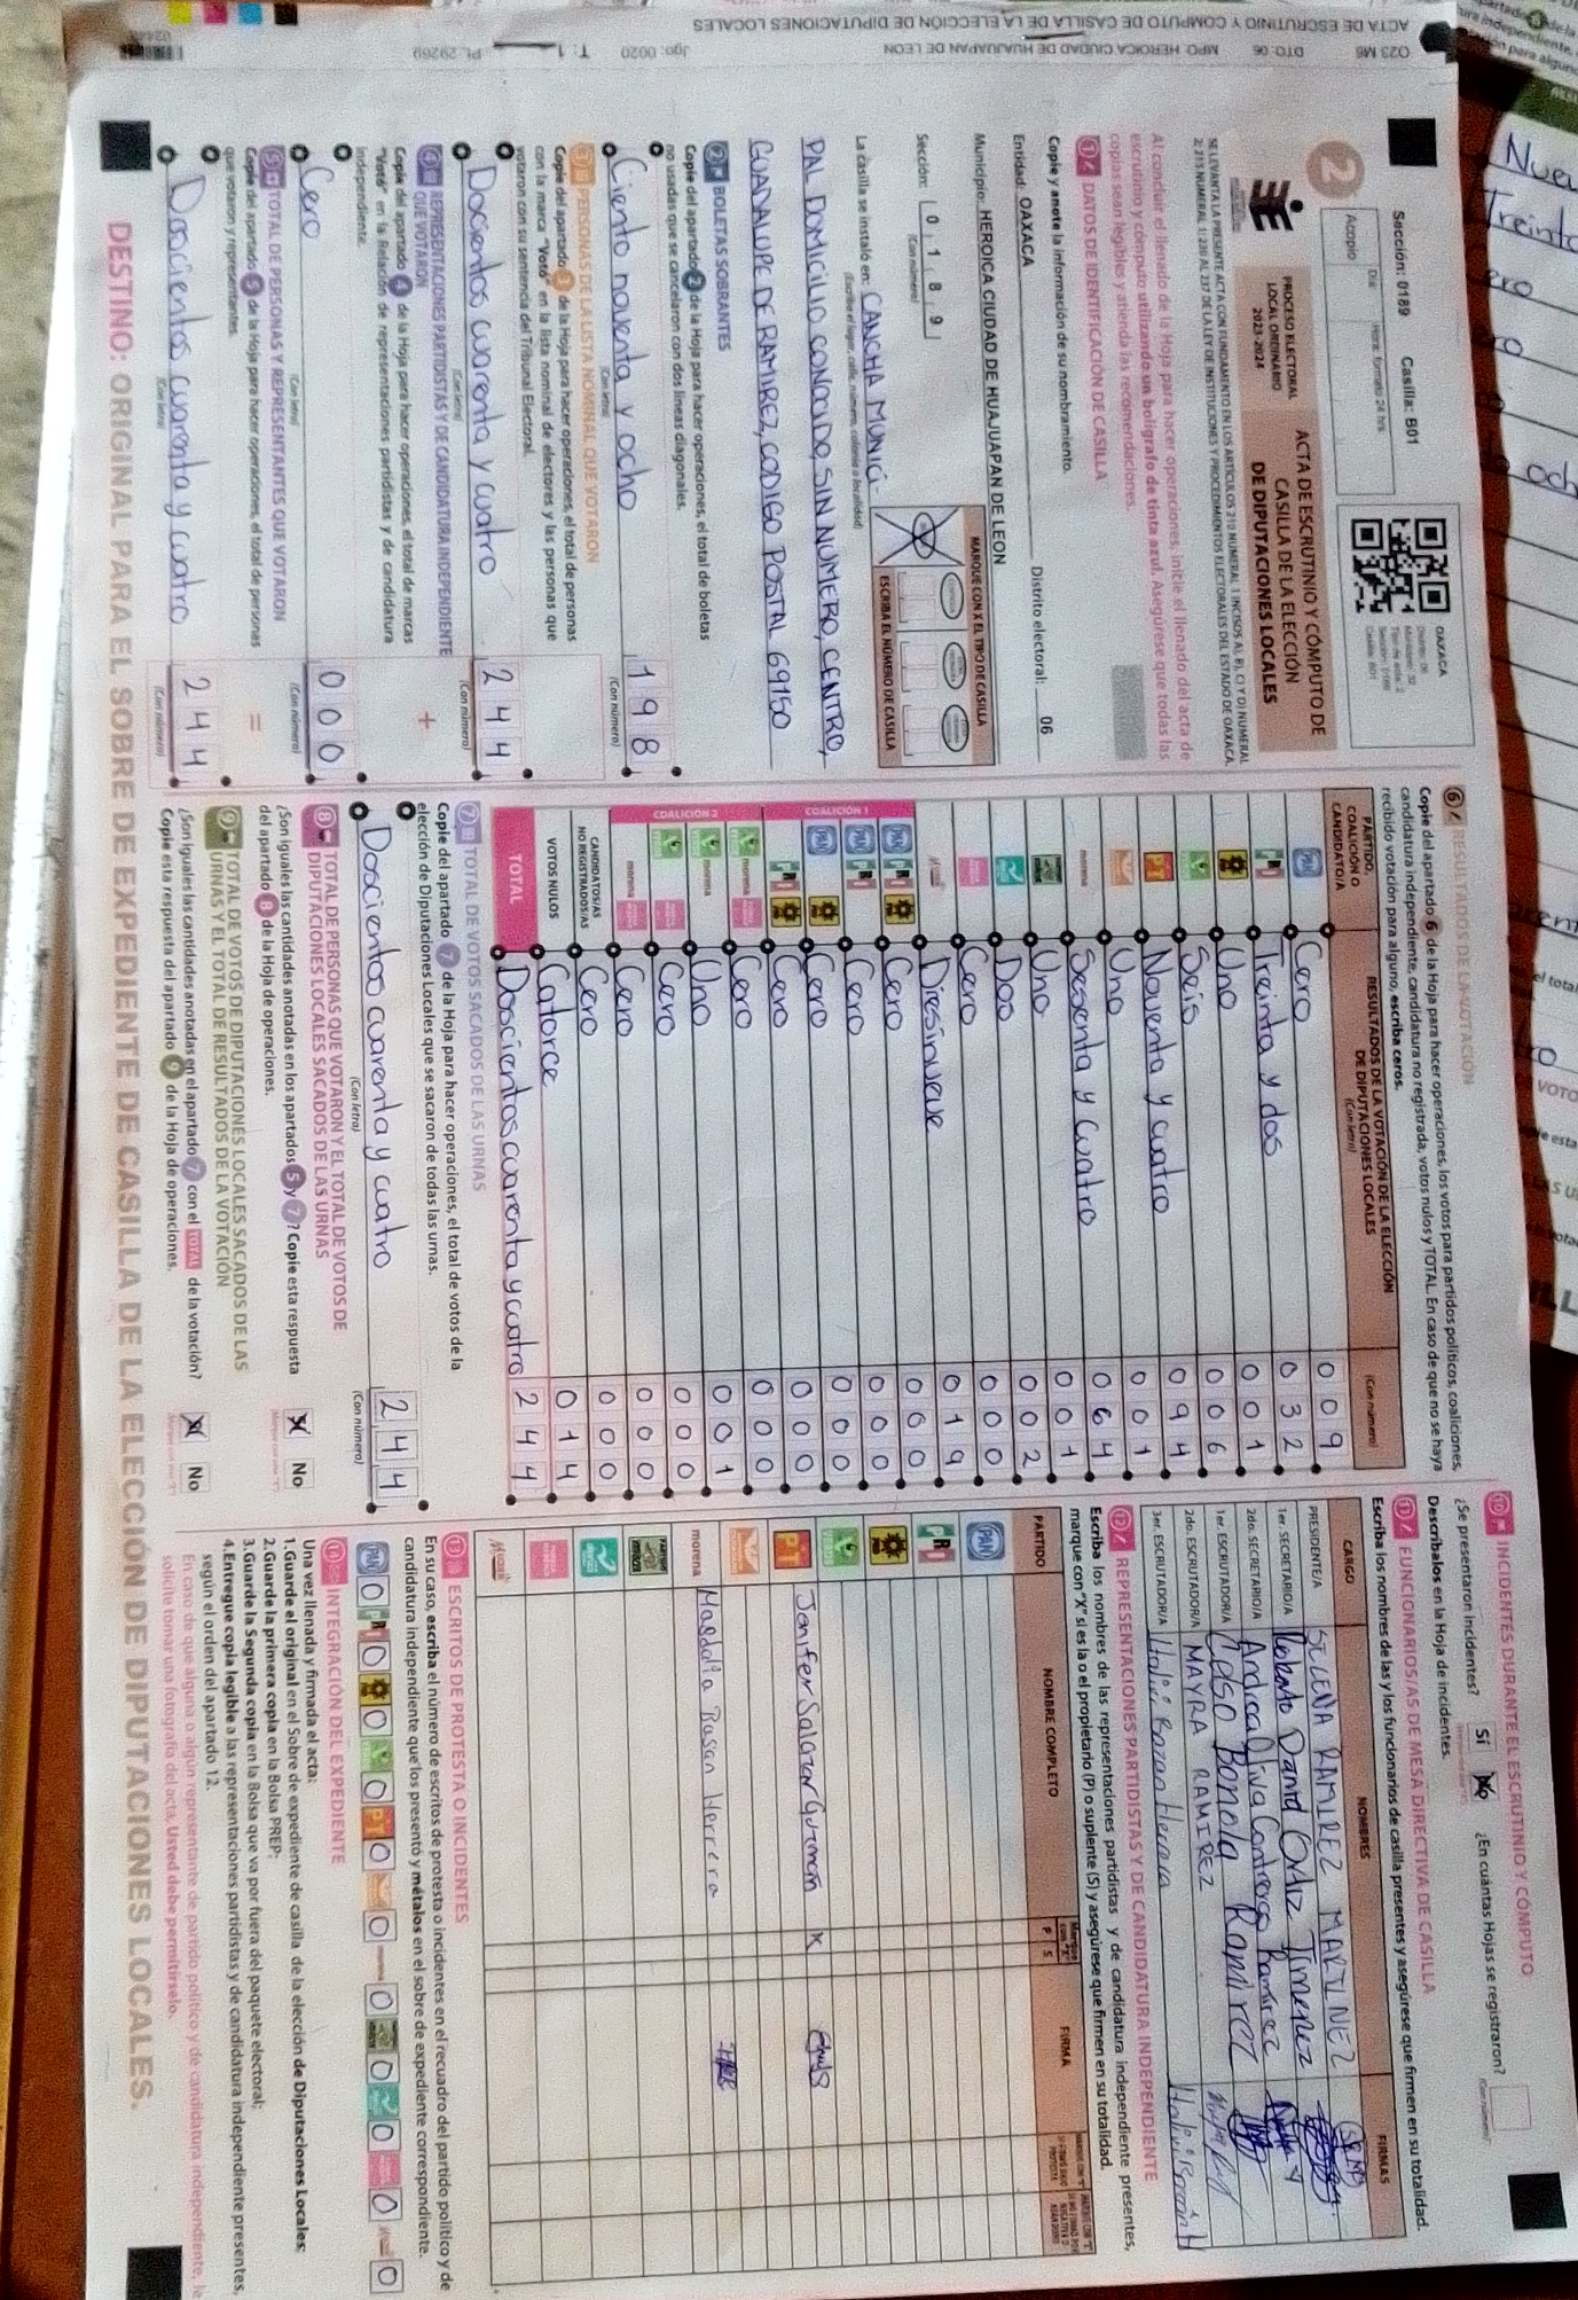 2
Sección: 0189 Casilla: B01
Acopio
Día:
Hora: formato 24 hrs
OAXACA
PROCESO ELECTORAL
LOCAL ORDINARIO
2023-2024
ACTA DE ESCRUTINIO Y CÓMPUTO DE
CASILLA DE LA ELECCIÓN
DE DIPUTACIONES LOCALES
Al concluir el llenado de la Hoja para hacer operaciones, inicie el llenado del acta de
escrutinio y cómputo utilizando un bolígrafo de tinta azul. Asegúrese que todas las
copias sean legibles y atienda las recomendaciones.
1 DATOS DE IDENTIFICACIÓN DE CASILLA
Copie y anote la información de su nombramiento.
Entidad: OAXACA Distrito electoral: 06
Municipio: HEROICA CIUDAD DE HUAJUAPAN DE LEON
Sección: 0 1 8 9
(Con número)
MARQUE CON X EL TIPO DE CASILLA
ESCRIBA EL NÚMERO DE CASILLA
La casilla se instaló en: CANCHA MUNICI-
PAL DOMICILIO CONOCIDO, SIN NUMERO, CENTRO,
GUADALUPE DE RAMIREZ, CODIGO POSTAL 69150
2 BOLETAS SOBRANTES
Copie del apartado 2 de la Hoja para hacer operaciones, el total de boletas
no usadas que se cancelaron con dos líneas diagonales.
Ciento noventa y ocho 1 9 8
(Con letra) (Con número)
3 PERSONAS DE LA LISTA NOMINAL QUE VOTARON
Copie del apartado 3 de la Hoja para hacer operaciones, el total de personas
con la marca "Votó" en la lista nominal de electores y las personas que
votaron con su sentencia del Tribunal Electoral.
Doscientos cuarenta y cuatro 2 4 4
(Con letra) (Con número)
4 REPRESENTACIONES PARTIDISTAS Y DE CANDIDATURA INDEPENDIENTE
QUE VOTARON
+
Copie del apartado 4 de la Hoja para hacer operaciones, el total de marcas
"Votó" en la Relación de representaciones partidistas y de candidatura
independiente.
Cero 0 0 0
(Con letra) (Con número)
5 TOTAL DE PERSONAS Y REPRESENTANTES QUE VOTARON
=
Copie del apartado 5 de la Hoja para hacer operaciones, el total de personas
que votaron y representantes.
Doscientos cuarenta y cuatro 2 4 4
(Con letra) (Con número)
6 RESULTADOS DE LA VOTACIÓN
Copie del apartado 6 de la Hoja para hacer operaciones, los votos para partidos políticos, coaliciones,
candidatura independiente, candidatura no registrada, votos nulos y TOTAL. En caso de que no se haya
recibido votación para alguno, escriba ceros.
PARTIDO,
COALICIÓN O
CANDIDATO/A
RESULTADOS DE LA VOTACIÓN DE LA ELECCIÓN
DE DIPUTACIONES LOCALES
(Con letra)
(Con número)
PAN Cero 0 0 9
PRI Treinta y dos 0 3 2
Uno 0 0 1
Seis 0 0 6
PT Noventa y cuatro 0 9 4
Uno 0 0 1
morena Sesenta y cuatro 0 6 4
Uno 0 0 1
Dos 0 0 2
Cero 0 0 0
Diesinueve 0 1 9
COALICIÓN 1
PAN PRI Cero 0 0 0
PAN PRI Cero 0 0 0
PAN Cero 0 0 0
PRI Cero 0 0 0
COALICIÓN 2
morena Cero 0 0 0
morena Uno 0 0 1
Cero 0 0 0
morena Cero 0 0 0
CANDIDATOS/AS
NO REGISTRADOS/AS Cero 0 0 0
VOTOS NULOS Catorce 0 1 4
TOTAL Doscientos cuarenta y cuatro 2 4 4
7 TOTAL DE VOTOS SACADOS DE LAS URNAS
Copie del apartado 7 de la Hoja para hacer operaciones, el total de votos de la
elección de Diputaciones Locales que se sacaron de todas las urnas.
Doscientos cuarenta y cuatro 2 4 4
(Con letra) (Con número)
8 TOTAL DE PERSONAS QUE VOTARON Y EL TOTAL DE VOTOS DE
DIPUTACIONES LOCALES SACADOS DE LAS URNAS
¿Son iguales las cantidades anotadas en los apartados 5 y 7? Copie esta respuesta
del apartado 8 de la Hoja de operaciones.
X No
9 TOTAL DE VOTOS DE DIPUTACIONES LOCALES SACADOS DE LAS
URNAS Y EL TOTAL DE RESULTADOS DE LA VOTACIÓN
¿Son iguales las cantidades anotadas en el apartado 7 con el TOTAL de la votación?
Copie esta respuesta del apartado 9 de la Hoja de operaciones.
X No
10 INCIDENTES DURANTE EL ESCRUTINIO Y CÓMPUTO
¿Se presentaron incidentes? Sí No ¿En cuántas Hojas se registraron?
Descríbalos en la Hoja de incidentes.
11 FUNCIONARIOS/AS DE MESA DIRECTIVA DE CASILLA
Escriba los nombres de las y los funcionarios de casilla presentes y asegúrese que firmen en su totalidad.
CARGO NOMBRES FIRMAS
PRESIDENTE/A SILENA RAMIREZ MARTINEZ
1er. SECRETARIO/A Roberto David Ortiz Jimenez
2do. SECRETARIO/A Andrea Oliva Contreras Ramírez
1er. ESCRUTADOR/A Celso Bonola Ramirez
2do. ESCRUTADOR/A MAYRA RAMIREZ
3er. ESCRUTADOR/A Italivi Bazan Herrera
12 REPRESENTACIONES PARTIDISTAS Y DE CANDIDATURA INDEPENDIENTE
Escriba los nombres de las representaciones partidistas y de candidatura independiente presentes,
marque con "X" si es la o el propietario (P) o suplente (S) y asegúrese que firmen en su totalidad.
PARTIDO NOMBRE COMPLETO P S FIRMA
PAN
PRI
Jenifer Salazar Guzmán X
PT
morena Magdalia Basan Herrera
13 ESCRITOS DE PROTESTA O INCIDENTES
En su caso, escriba el número de escritos de protesta o incidentes en el recuadro del partido político y de
candidatura independiente que los presentó y métalos en el sobre de expediente correspondiente.
PAN 0 PRI 0 0 0 PT 0 0 morena 0 0 0 0 0
14 INTEGRACIÓN DEL EXPEDIENTE
Una vez llenada y firmada el acta:
1.Guarde el original en el Sobre de expediente de casilla de la elección de Diputaciones Locales;
2.Guarde la primera copia en la Bolsa PREP;
3.Guarde la Segunda copia en la Bolsa que va por fuera del paquete electoral;
4.Entregue copia legible a las representaciones partidistas y de candidatura independiente presentes,
según el orden del apartado 12.
En caso de que alguna o algún representante de partido político y de candidatura independiente, le
solicite tomar una fotografía del acta, Usted debe permitírselo.
DESTINO: ORIGINAL PARA EL SOBRE DE EXPEDIENTE DE CASILLA DE LA ELECCIÓN DE DIPUTACIONES LOCALES.
023 M6 DTO: 06 MPO: HEROICA CIUDAD DE HUAJUAPAN DE LEON Jgo: 0020 T: 1 PL: 29269
ACTA DE ESCRUTINIO Y COMPUTO DE CASILLA DE LA ELECCIÓN DE DIPUTACIONES LOCALES